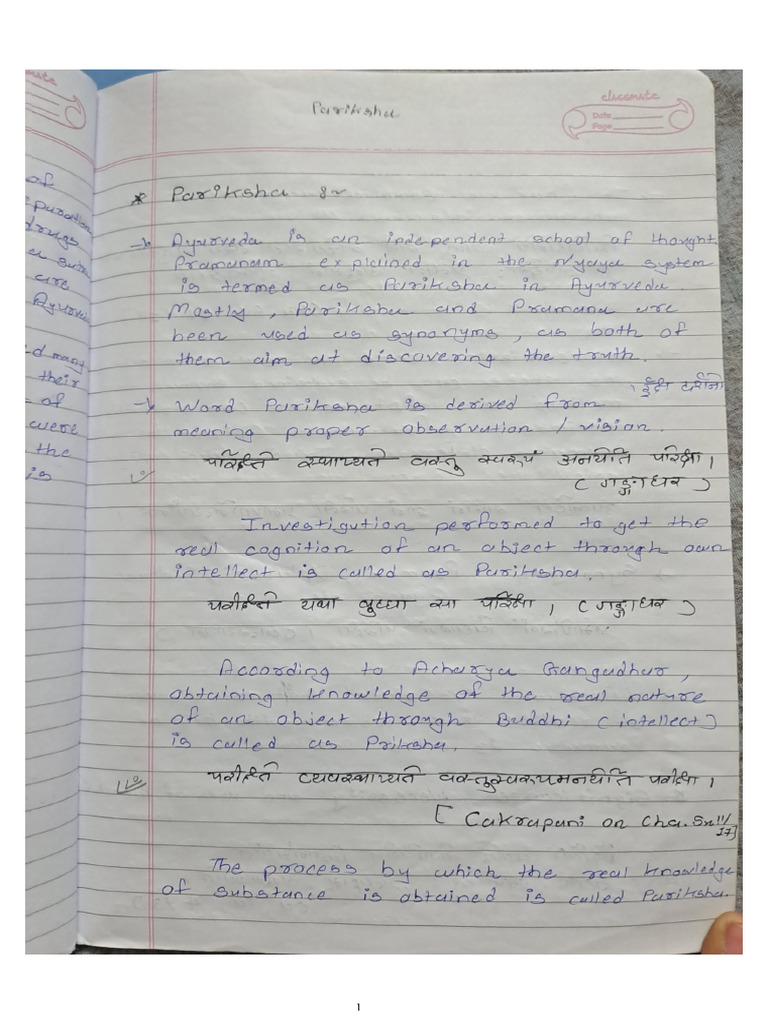 Pariksha
classmate
Date
Page
* Pariksha :-
→ Ayurveda is an independent school of thought.
Pramanam explained in the Nyaya system
is termed as Pariksha in Ayurveda.
Mostly, Pariksha and Pramana are
been used as synonyms, as both of
them aim at discovering the truth.
→ Word Pariksha is derived from
meaning proper observation / vision.
परिक्षते स्थाप्यते वस्तु स्वरूपं अनयेति परिक्षा।
(गङ्गाधर)
Investigution performed to get the
real cognition of an object through own
intellect is called as Pariksha.
परीक्षते यथा बुध्या सा परिक्षा। (गङ्गाधर)
According to Acharya Gangadhar,
obtaining knowledge of the real nature
of an object through Buddhi (intellect)
is called as Priksha.
परीक्षते व्यवस्थाप्यते वस्तुस्वरूपमनयेति परीक्षा।
[Cakrapani on Cha.Su.11/
17]
The process by which the real knowledge
of substance is obtained is called Pariksha.
of
drugs
are
Ayurve
d many
their
of
were
the
is
1